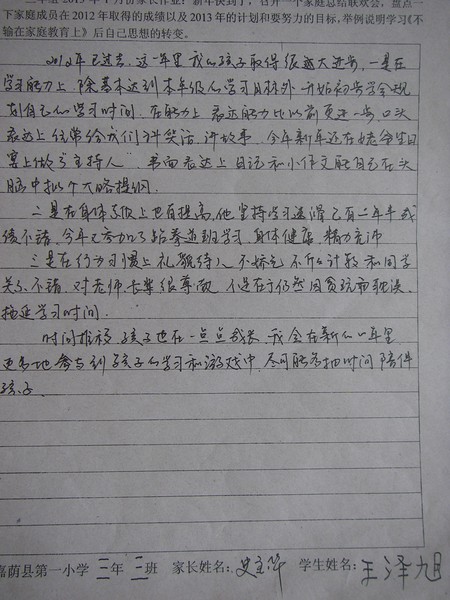 三年级 2013 年 1 月份家长作业：新年快到了，召开一个家庭总结联欢会，盘点一
下家庭成员在 2012 年取得的成绩以及 2013 年的计划和要努力的目标，举例说明学习《不
输在家庭教育上》后自己思想的转变。
2012年已过去，这一年里我的孩子取得很大进步，一是在
学习能力上 除基本达到本年级的学习目标外 开始初步学会规
划自己的学习时间。在能力上 表达能力比以前更进一步 口头
表达上 经常给我们讲笑话 讲故事 今年新年还在姥爷生日
宴上做了主持人 书面表达上 日记和小作文能自己在头
脑中拟个大略提纲.
二是在身体素质上也有提高, 他坚持学习速滑已有二年半成
绩不错, 今年又参加了跆拳道班学习 身体健康 精力充沛
三是在行为习惯上 礼貌待人 不娇气 不斤斤计较 和同学
关系不错. 对老师长辈很尊敬 不足在于仍然因贪玩而耽误、
拖延学习时间.
时间推移 孩子也在一点点成长 我会在新的一年里
更多地参与到孩子的学习和游戏中, 尽可能多抽时间陪伴
孩子.
嘉荫县第一小学 三年 三班 家长姓名: 学生姓名: 王泽旭